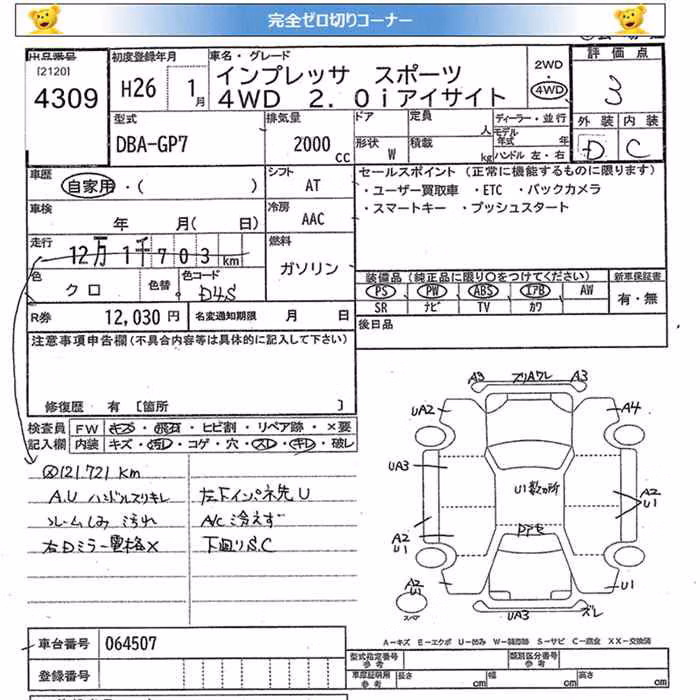 完全ゼロ切りコーナー
出品番号
[2120]
4309
初度登録年月
H26 1月
車名・グレード
インプレッサ スポーツ
4WD 2.0iアイサイト
2WD
・
4WD
評価点
3
外装 内装
D C
型式
DBA-GP7
排気量
2000 cc
ドア
形状 W
定員 人
積載 kg
ディーラー・並行
モデル年式 年
ハンドル 左・右
車歴
自家用・( )
シフト
AT
車検
年 月( 日)
冷房
AAC
走行
12万1千703km
燃料
ガソリン
色
クロ
色替
色コード
D4S
R券 12,030円
名変通知期限 月 日
セールスポイント (正常に機能するものに限ります)
・ユーザー買取車 ・ETC ・バックカメラ
・スマートキー ・プッシュスタート
装備品(純正品に限り○をつけてください)
PS PW ABS エアB AW
SR ナビ TV カワ
新車保証書
有・無
後日品
注意事項申告欄(不具合内容等は具体的に記入して下さい)
修復歴 有 [箇所 ]
検査員記入欄
FW キズ・飛石・ヒビ割・リペア跡・×要
内装 キズ・汚れ・コゲ・穴・スレ・キレ・破レ
121.721 km
A.U ハンドルスリキレ
シームしみ 汚れ
右Dミラー電格X
左下インパネ先U
A/C冷えず
下回りS.C
A3 ズリAワレ A3
UA2 A4
UA3
U1数ヵ所
A2 U1
A2 U1
A2 U1
U1
スペア
UA3 ズレ
車台番号 064507
登録番号
A-キズ E-エクボ U-凹み W-補修跡 S-サビ C-腐食 XX-交換済
型式指定番号 参考
類別区分番号 参考
車庫証明用 参考
長さ cm
幅 cm
高さ cm